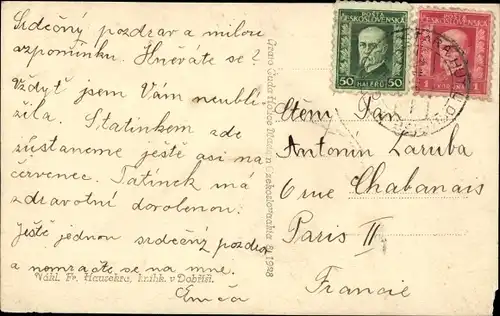 Srdečný pozdrav a milou
vzpomínku. Hněváte se?
Vždyť jsem Vám neublí-
žila. Statínkem zde
zůstaneme ještě asi na
červenec. Tatínek má
zdravotní dovolenou.
Ještě jednou srdečný pozdrav
a nemračte se na mne.
Nákl. Fr. Hausekra, knihk. v Dobříši.
POŠTA
ČESKOSLOVENSKÁ
50 HALÉŘŮ 50
POŠTA
ČESKOSLOVENSKÁ
1 1
Ctěný Pan
Antonín Zaruba
6 rue Chabanais
Paris II
Francie